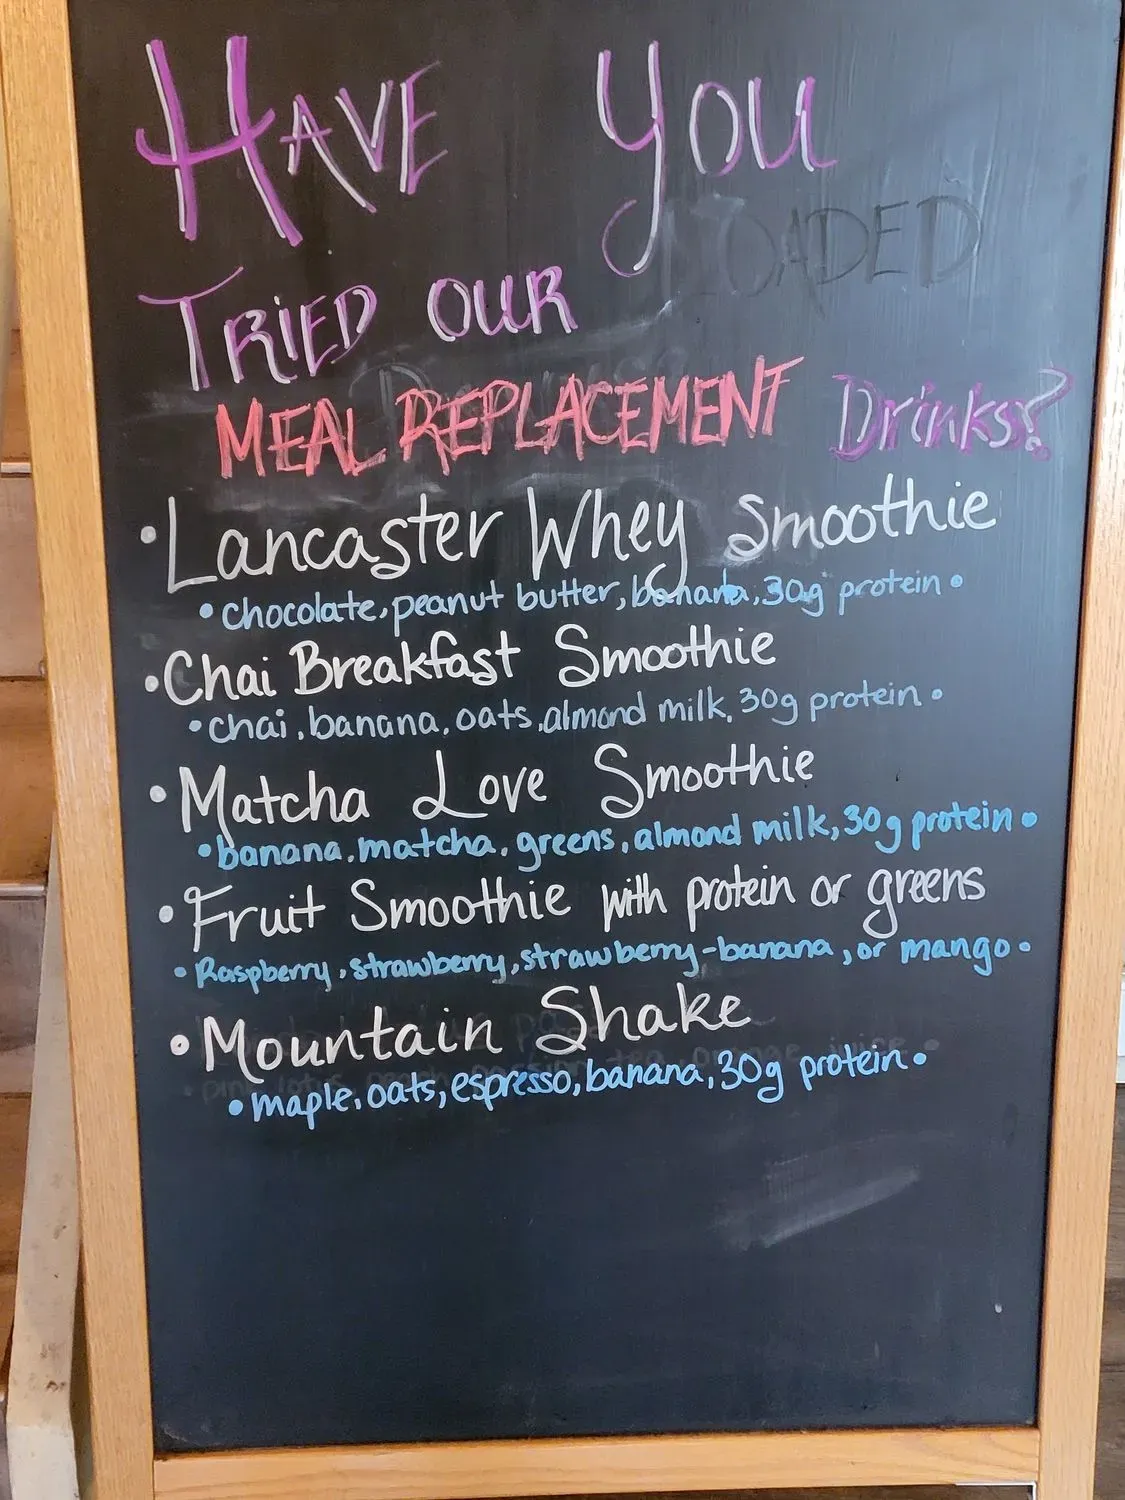 HAVE YOU
LOADED
TRIED OUR
MEAL REPLACEMENT Drinks?
• Lancaster Whey Smoothie
• chocolate, peanut butter, banana, 30g protein •
• Chai Breakfast Smoothie
• chai, banana, oats, almond milk, 30g protein •
• Matcha Love Smoothie
• banana, matcha, greens, almond milk, 30g protein •
• Fruit Smoothie with protein or greens
• Raspberry, strawberry, strawberry-banana, or mango •
• Mountain Shake
• maple, oats, espresso, banana, 30g protein •